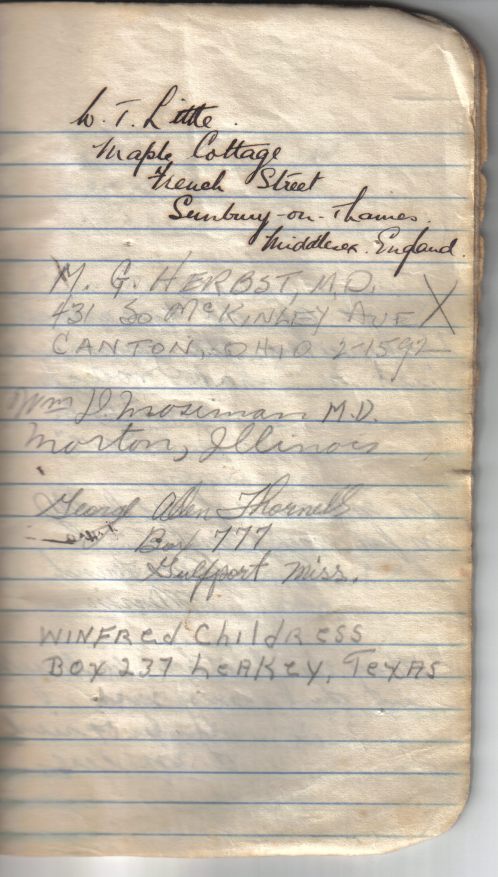 W. T. Little.
Maple Cottage
French Street
Sunbury-on-Thames.
Middlesex. England.
M. G. HERBST, M.D. X
431 So McKINLEY AVE
CANTON, OHIO 2-1592
Wm D. Mosiman M.D.
Morton, Illinois
George Alen Thornell
Box 777
Gulfport Miss.
WINFRED CHILDRESS
BOX 237 LEAKEY, TEXAS